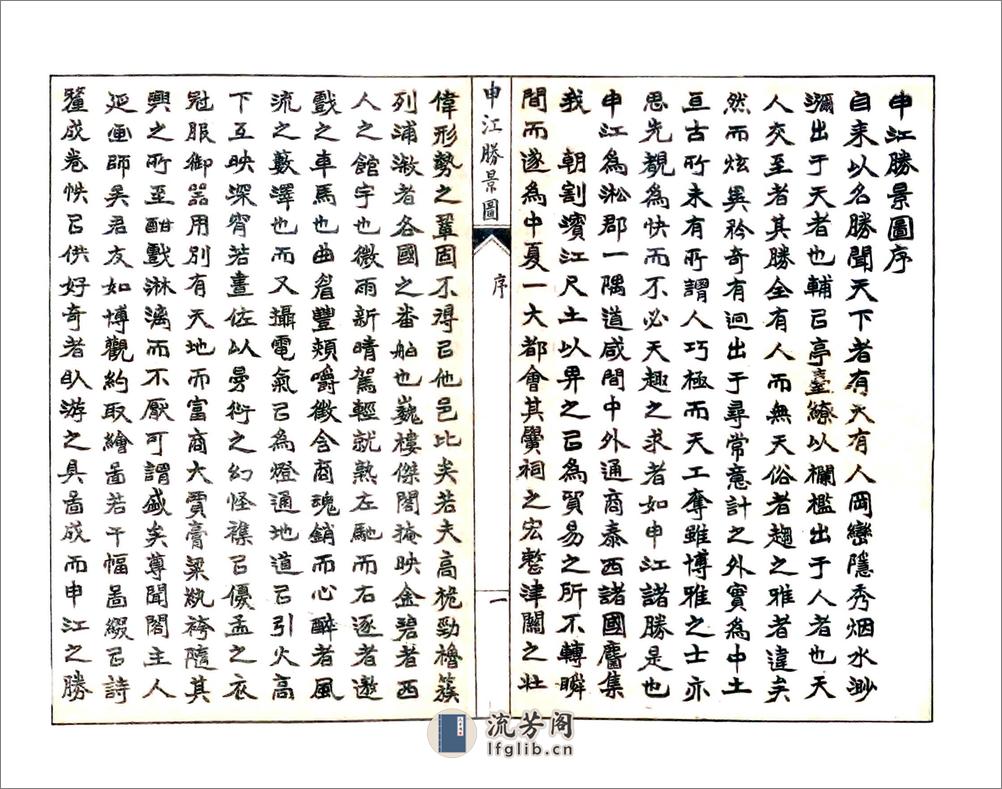 申江勝景圖序
自来以名勝聞天下者有天有人岡巒隱秀烟水渺
瀰出于天者也輔㠯亭臺繚以欄檻出于人者也天
人交至者其勝全有人而無天俗者趨之雅者違矣
然而炫異矜奇有迥出于尋常意計之外實為中土
亘古所未有所謂人巧極而天工奪雖博雅之士亦
思先覩為快而不必天趣之求者如申江諸勝是也
申江為淞郡一隅道咸間中外通商泰西諸國麕集
我　朝割濱江尺土以畀之㠯為貿易之所不轉瞬
間而遂為中夏一大都會其黌祠之宏整津關之壯
申江勝景圖
序
一
偉形勢之鞏固不得㠯他邑比矣若夫高桅勁櫓簇
列浦溆者各國之番舶也巍樓傑閣掩映金碧者西
人之館宇也微雨新晴駕輕就熟左馳而右逐者遨
戲之車馬也曲眉豐頰嚼徵含商魂銷而心醉者風
流之藪澤也而又攝電氣㠯為燈通地道㠯引火高
下互映深宵若晝佐以曼衍之幻怪襍㠯優孟之衣
冠服御器用別有天地而富商大賈膏粱紈袴隨其
興之所至酣戲淋漓而不厭可謂盛矣尊聞閣主人
延画師吳君友如博觀約取繪啚若干幅啚綴㠯詩
釐成卷帙㠯供好奇者臥游之具啚成而申江之勝
流芳阁
lfglib.cn